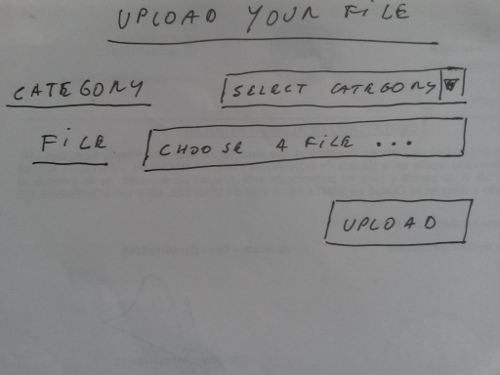 UPLOAD YOUR FILE
CATEGORY SELECT CATEGORY
FILE CHOOSE A FILE ...
UPLOAD